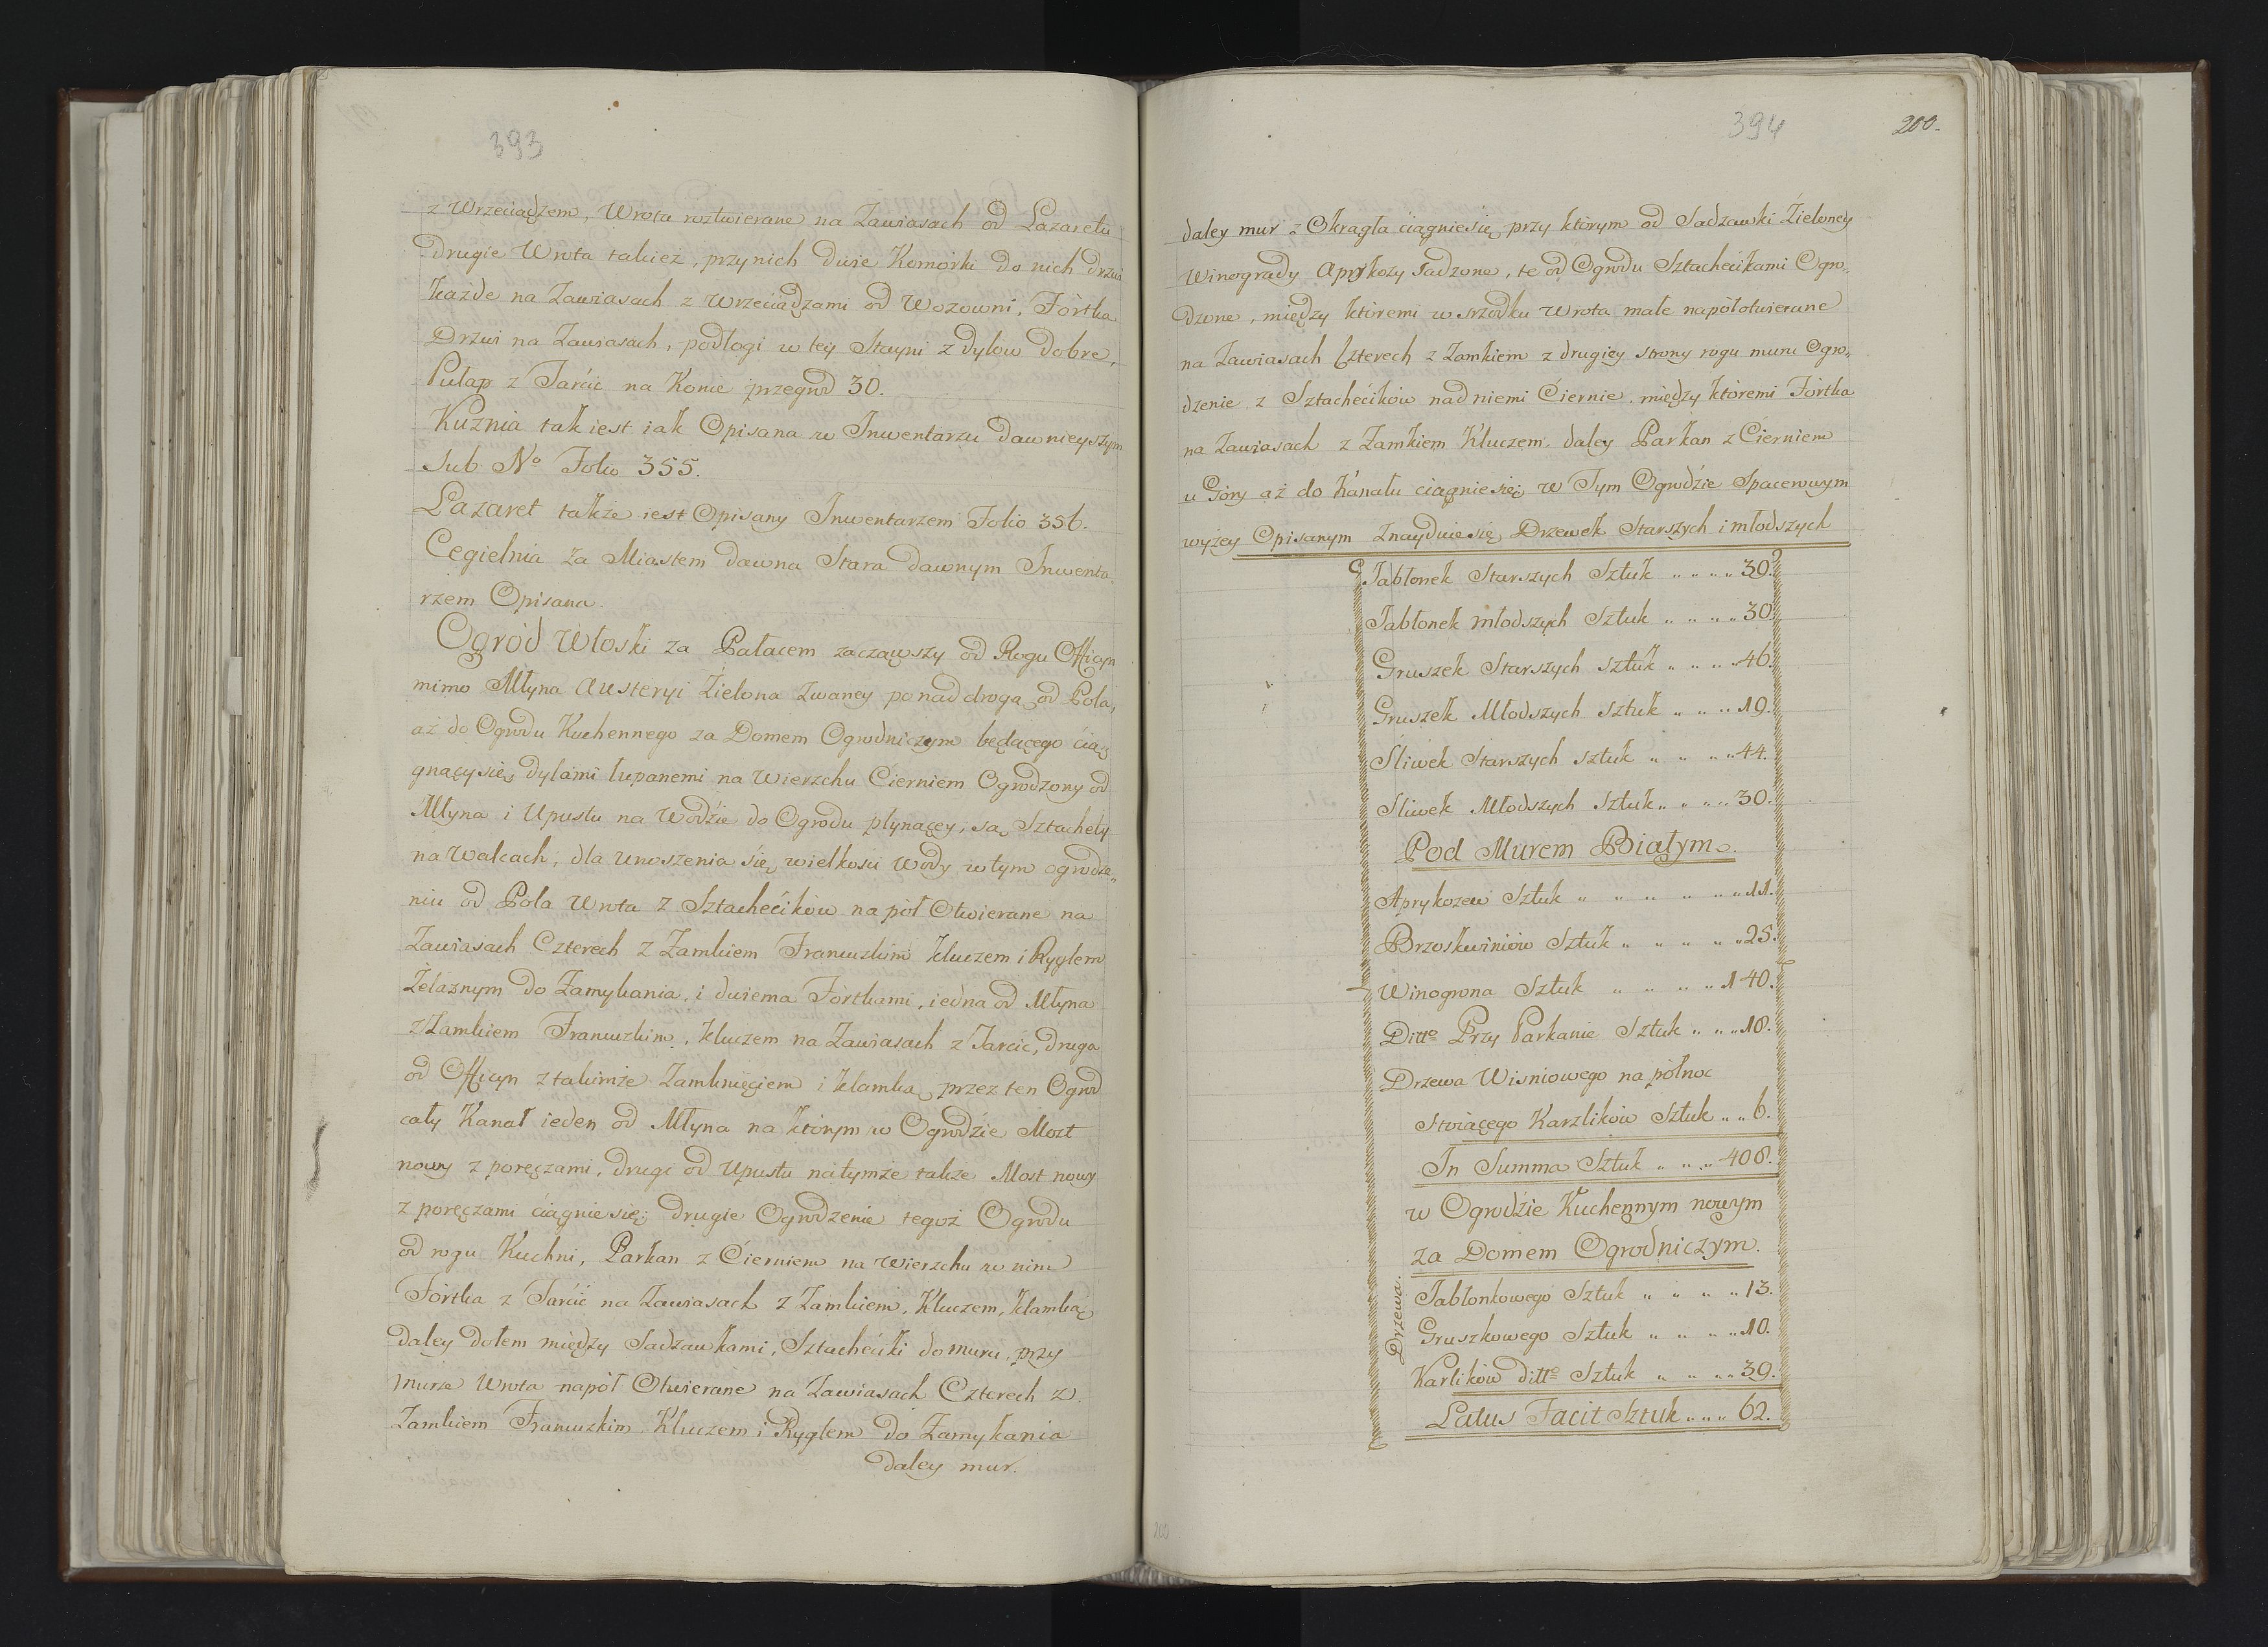 393
z Wrzeciądzem, Wrota roztwierane na Zawiasach od Lazaretu
drugie Wrota takież, przy nich dwie Komorki do nich drzwi
każde na Zawiasach z Wrzeciądzami od Wozowni, Fórtka
Drzwi na Zawiasach, podłogi w tey Stayni z dylów dobre,
Pułap z Tarćic na Konie przegrod 30.
Kuznia tak iest iak Opisana w Inwentarzu dawnieyszym
Sub No Folio 355.
Lazaret także iest Opisany Inwentarzem Folio 356.
Cegielnia za Miastem dawna Stara dawnym Inwenta
rzem Opisana.
Ogród Włoski za Pałacem zacząwszy od Rogu Officyn
mimo Młyna Austeryi Źielona zwaney ponad drogą od Pola,
aż do Ogrodu Kuchennego za Domem Ogrodniczym będącego ćią
gnący się dylami łupanemi na wierzchu Cierniem Ogrodzony od
Młyna i Upustu na Wodźie do Ogrodu płynącey, są Sztachety
na Walcach, dla unoszenia się wielkosci wody w tym ogrodze„
niu od Pola Wrota z Sztachećików na pół Otwierane na
Zawiasach Czterech z Zamkiem Francuzkim kluczem i Ryglem
Żelaznym do Zamykania, i dwiema Fórtkami, iedna od Młyna
z Zamkiem Francuzkim, kluczem na Zawiasach z Tarcic, druga
od Officyn z takimże Zamknięciem i klamką przez ten Ogrod
cały Kanał ieden od Młyna na którym w Ogrodźie Most
nowy z poręczami, drugi od Upustu na tymże także Most nowy
z poręczami ćiągnie się; drugie Ogrodzenie tegoż Ogrodu
od rogu Kuchni, Parkan z Cierniem na wierzchu w nim
Fórtka z Tarćic na Zawiasach z Zamkiem, Kluczem, klamką
daley dołem między Sadzawkami, Sztachećiki do muru, przy
murze Wrota napół Otwierane na Zawiasach Czterech z
Zamkiem Francuzkim Kluczem i Ryglem do Zamykania
daley mur.
394
200.
daley mur z Okrągla ciągnie się przy którym od Sadzawki Źieloney
Winogrady Aprykozy sadzone, te od Ogrodu Sztachećikami Ogro„
dzone, między któremi w srzodku Wrota małe napółotwierane
na Zawiasach Czterech z Zamkiem z drugiey strony rogu muru Ogro„
dzenie z Sztachećików nad niemi Ćiernie, między któremi Fórtka
na Zawiasach z Zamkiem Kluczem daley Parkan z Ćierniem
u Góry aż do Kanału ciągnie się; w Tym Ogrodźie Spacerowym
wyżey Opisanym znayduie się Drzewek Starszych i młodszych
Jabłonek Starszych Sztuk „ „ „ „ 30.
Jabłonek młodszych Sztuk „ „ „ „ 30.
Gruszek Starszych sztuk „ „ „ „ 46.
Gruszek Młodszych sztuk „ „ „ 19.
Śliwek Starszych sztuk „ „ „ „ 44.
Sliwek Młodszych Sztuk „ „ „ „ 30.
Pod Murem Białym.
Aprykozew Sztuk „ „ „ „ „ „ 11.
Brzoskwiniów Sztuk „ „ „ „ „ 25.
Winogrona Sztuk „ „ „ „ „ 140.
Ditto Przy Parkanie Sztuk „ „ „ 18.
Drzewa Wisniowego na północ
Stoiącego Karzlików Sztuk „ „ 6.
In Summa Sztuk „ „ „ 408.
w Ogrodźie Kuchennym nowym
za Domem Ogrodniczym.
Drzewa.
Jabłonkowego Sztuk „ „ „ „ 13.
Gruszkowego Sztuk „ „ „ „ 10.
Karlików ditto Sztuk „ „ „ „ 39.
Latus Facit Sztuk „ „ „ 62.
200